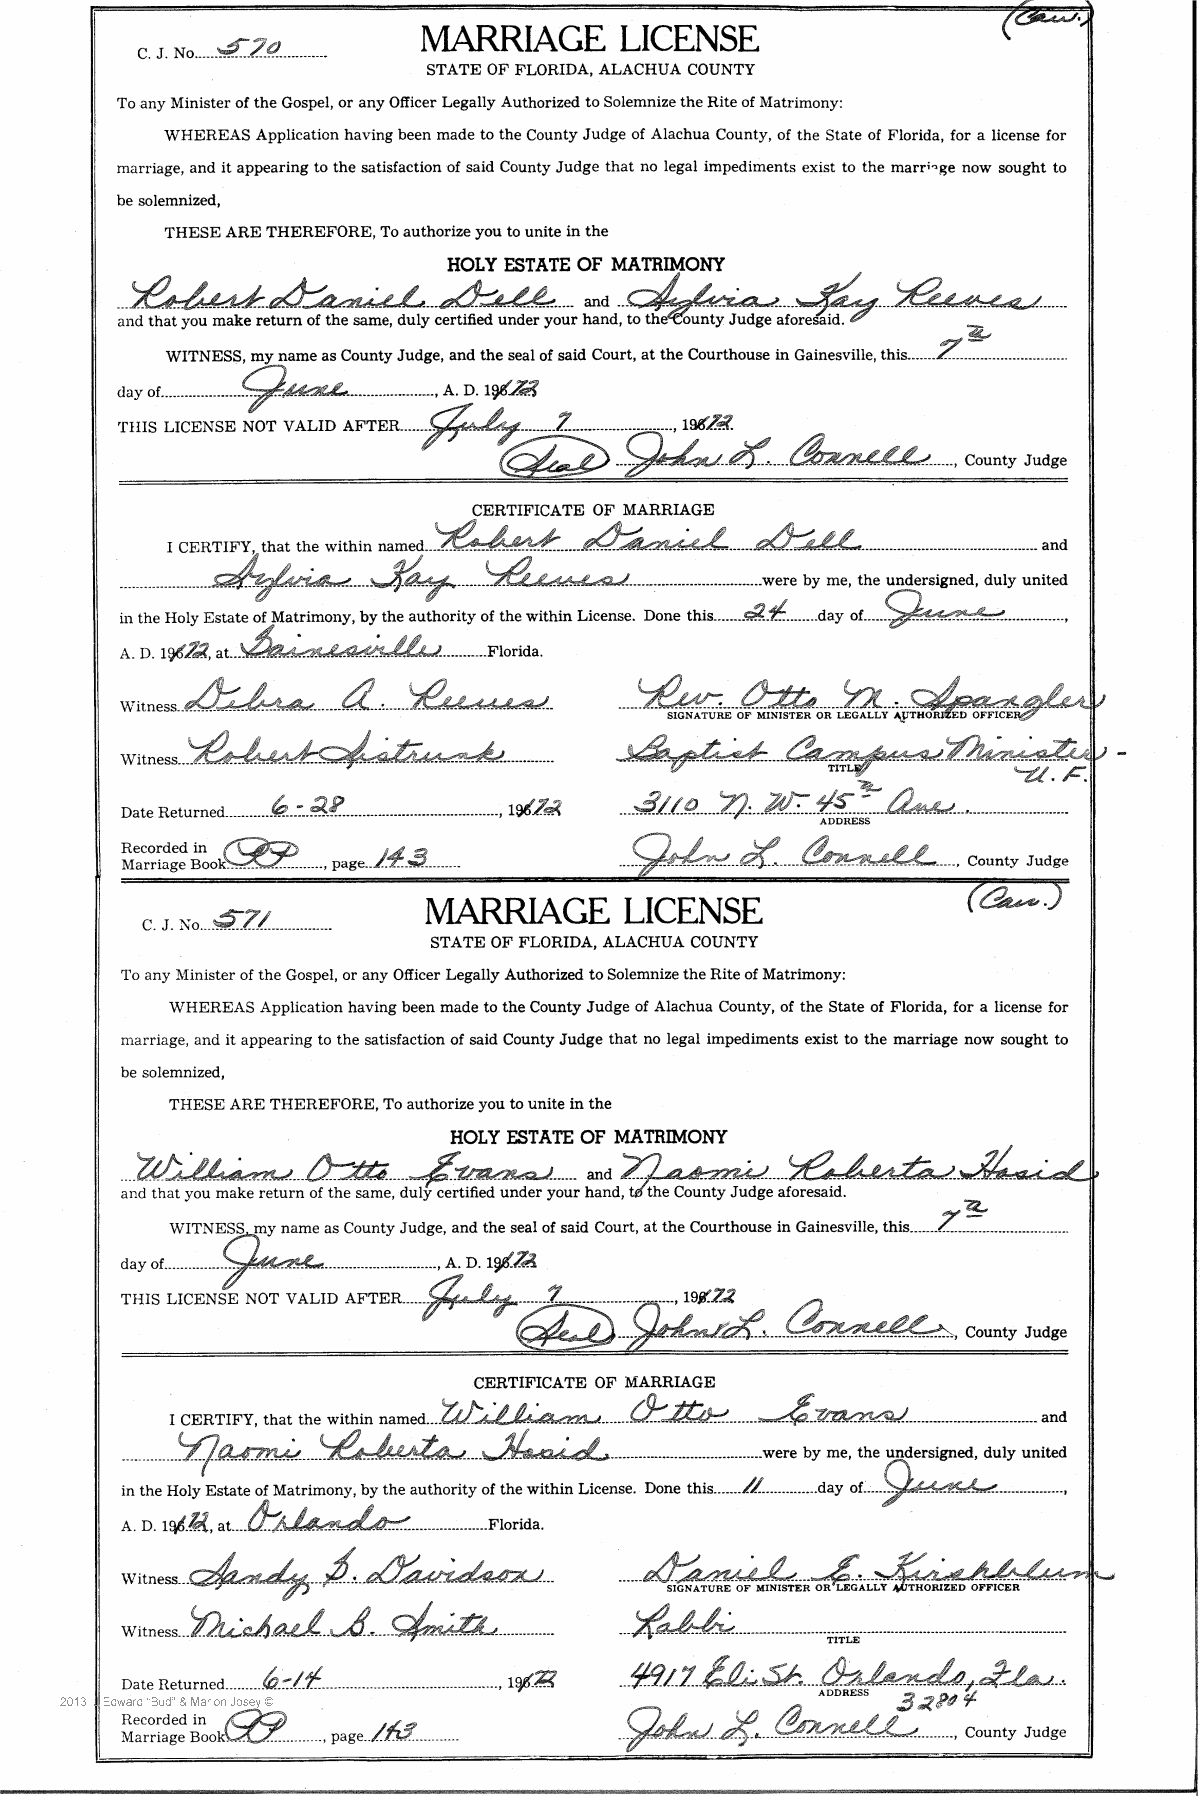 (Cau.)
C. J. No. 570 MARRIAGE LICENSE
STATE OF FLORIDA, ALACHUA COUNTY
To any Minister of the Gospel, or any Officer Legally Authorized to Solemnize the Rite of Matrimony:
WHEREAS Application having been made to the County Judge of Alachua County, of the State of Florida, for a license for
marriage, and it appearing to the satisfaction of said County Judge that no legal impediments exist to the marriage now sought to
be solemnized,
THESE ARE THEREFORE, To authorize you to unite in the
HOLY ESTATE OF MATRIMONY
Robert Daniel Dell and Sylvia Kay Reeves
and that you make return of the same, duly certified under your hand, to the County Judge aforesaid.
WITNESS, my name as County Judge, and the seal of said Court, at the Courthouse in Gainesville, this 7th
day of June, A. D. 1972
THIS LICENSE NOT VALID AFTER July 7, 1972.
(Seal) John L. Connell, County Judge
CERTIFICATE OF MARRIAGE
I CERTIFY, that the within named Robert Daniel Dell and
Sylvia Kay Reeves were by me, the undersigned, duly united
in the Holy Estate of Matrimony, by the authority of the within License. Done this 24 day of June,
A. D. 1972, at Gainesville Florida.
Witness Debra A. Reeves Rev. Otto M. Spangler
SIGNATURE OF MINISTER OR LEGALLY AUTHORIZED OFFICER
Witness Robert Sistrunk Baptist Campus Minister -
TITLE U. F.
Date Returned 6-28, 1972 3110 N. W. 45th Ave.
ADDRESS
Recorded in
Marriage Book PP, page 143 John L. Connell, County Judge
(Cau.)
C. J. No. 571 MARRIAGE LICENSE
STATE OF FLORIDA, ALACHUA COUNTY
To any Minister of the Gospel, or any Officer Legally Authorized to Solemnize the Rite of Matrimony:
WHEREAS Application having been made to the County Judge of Alachua County, of the State of Florida, for a license for
marriage, and it appearing to the satisfaction of said County Judge that no legal impediments exist to the marriage now sought to
be solemnized,
THESE ARE THEREFORE, To authorize you to unite in the
HOLY ESTATE OF MATRIMONY
William Otto Evans and Naomi Roberta Hosid
and that you make return of the same, duly certified under your hand, to the County Judge aforesaid.
WITNESS, my name as County Judge, and the seal of said Court, at the Courthouse in Gainesville, this 7th
day of June, A. D. 1972
THIS LICENSE NOT VALID AFTER July 7, 1972
(Seal) John L. Connell, County Judge
CERTIFICATE OF MARRIAGE
I CERTIFY, that the within named William Otto Evans and
Naomi Roberta Hosid were by me, the undersigned, duly united
in the Holy Estate of Matrimony, by the authority of the within License. Done this 11 day of June,
A. D. 1972, at Orlando Florida.
Witness Sandy S. Davidson Daniel E. Kirshblum
SIGNATURE OF MINISTER OR LEGALLY AUTHORIZED OFFICER
Witness Michael B. Smith Rabbi
TITLE
Date Returned 6-14, 1972 4917 Eli St. Orlando, Fla.
ADDRESS 32804
2013 Edward "Bud" & Marion Josey ©
Recorded in
Marriage Book PP, page 143 John L. Connell, County Judge